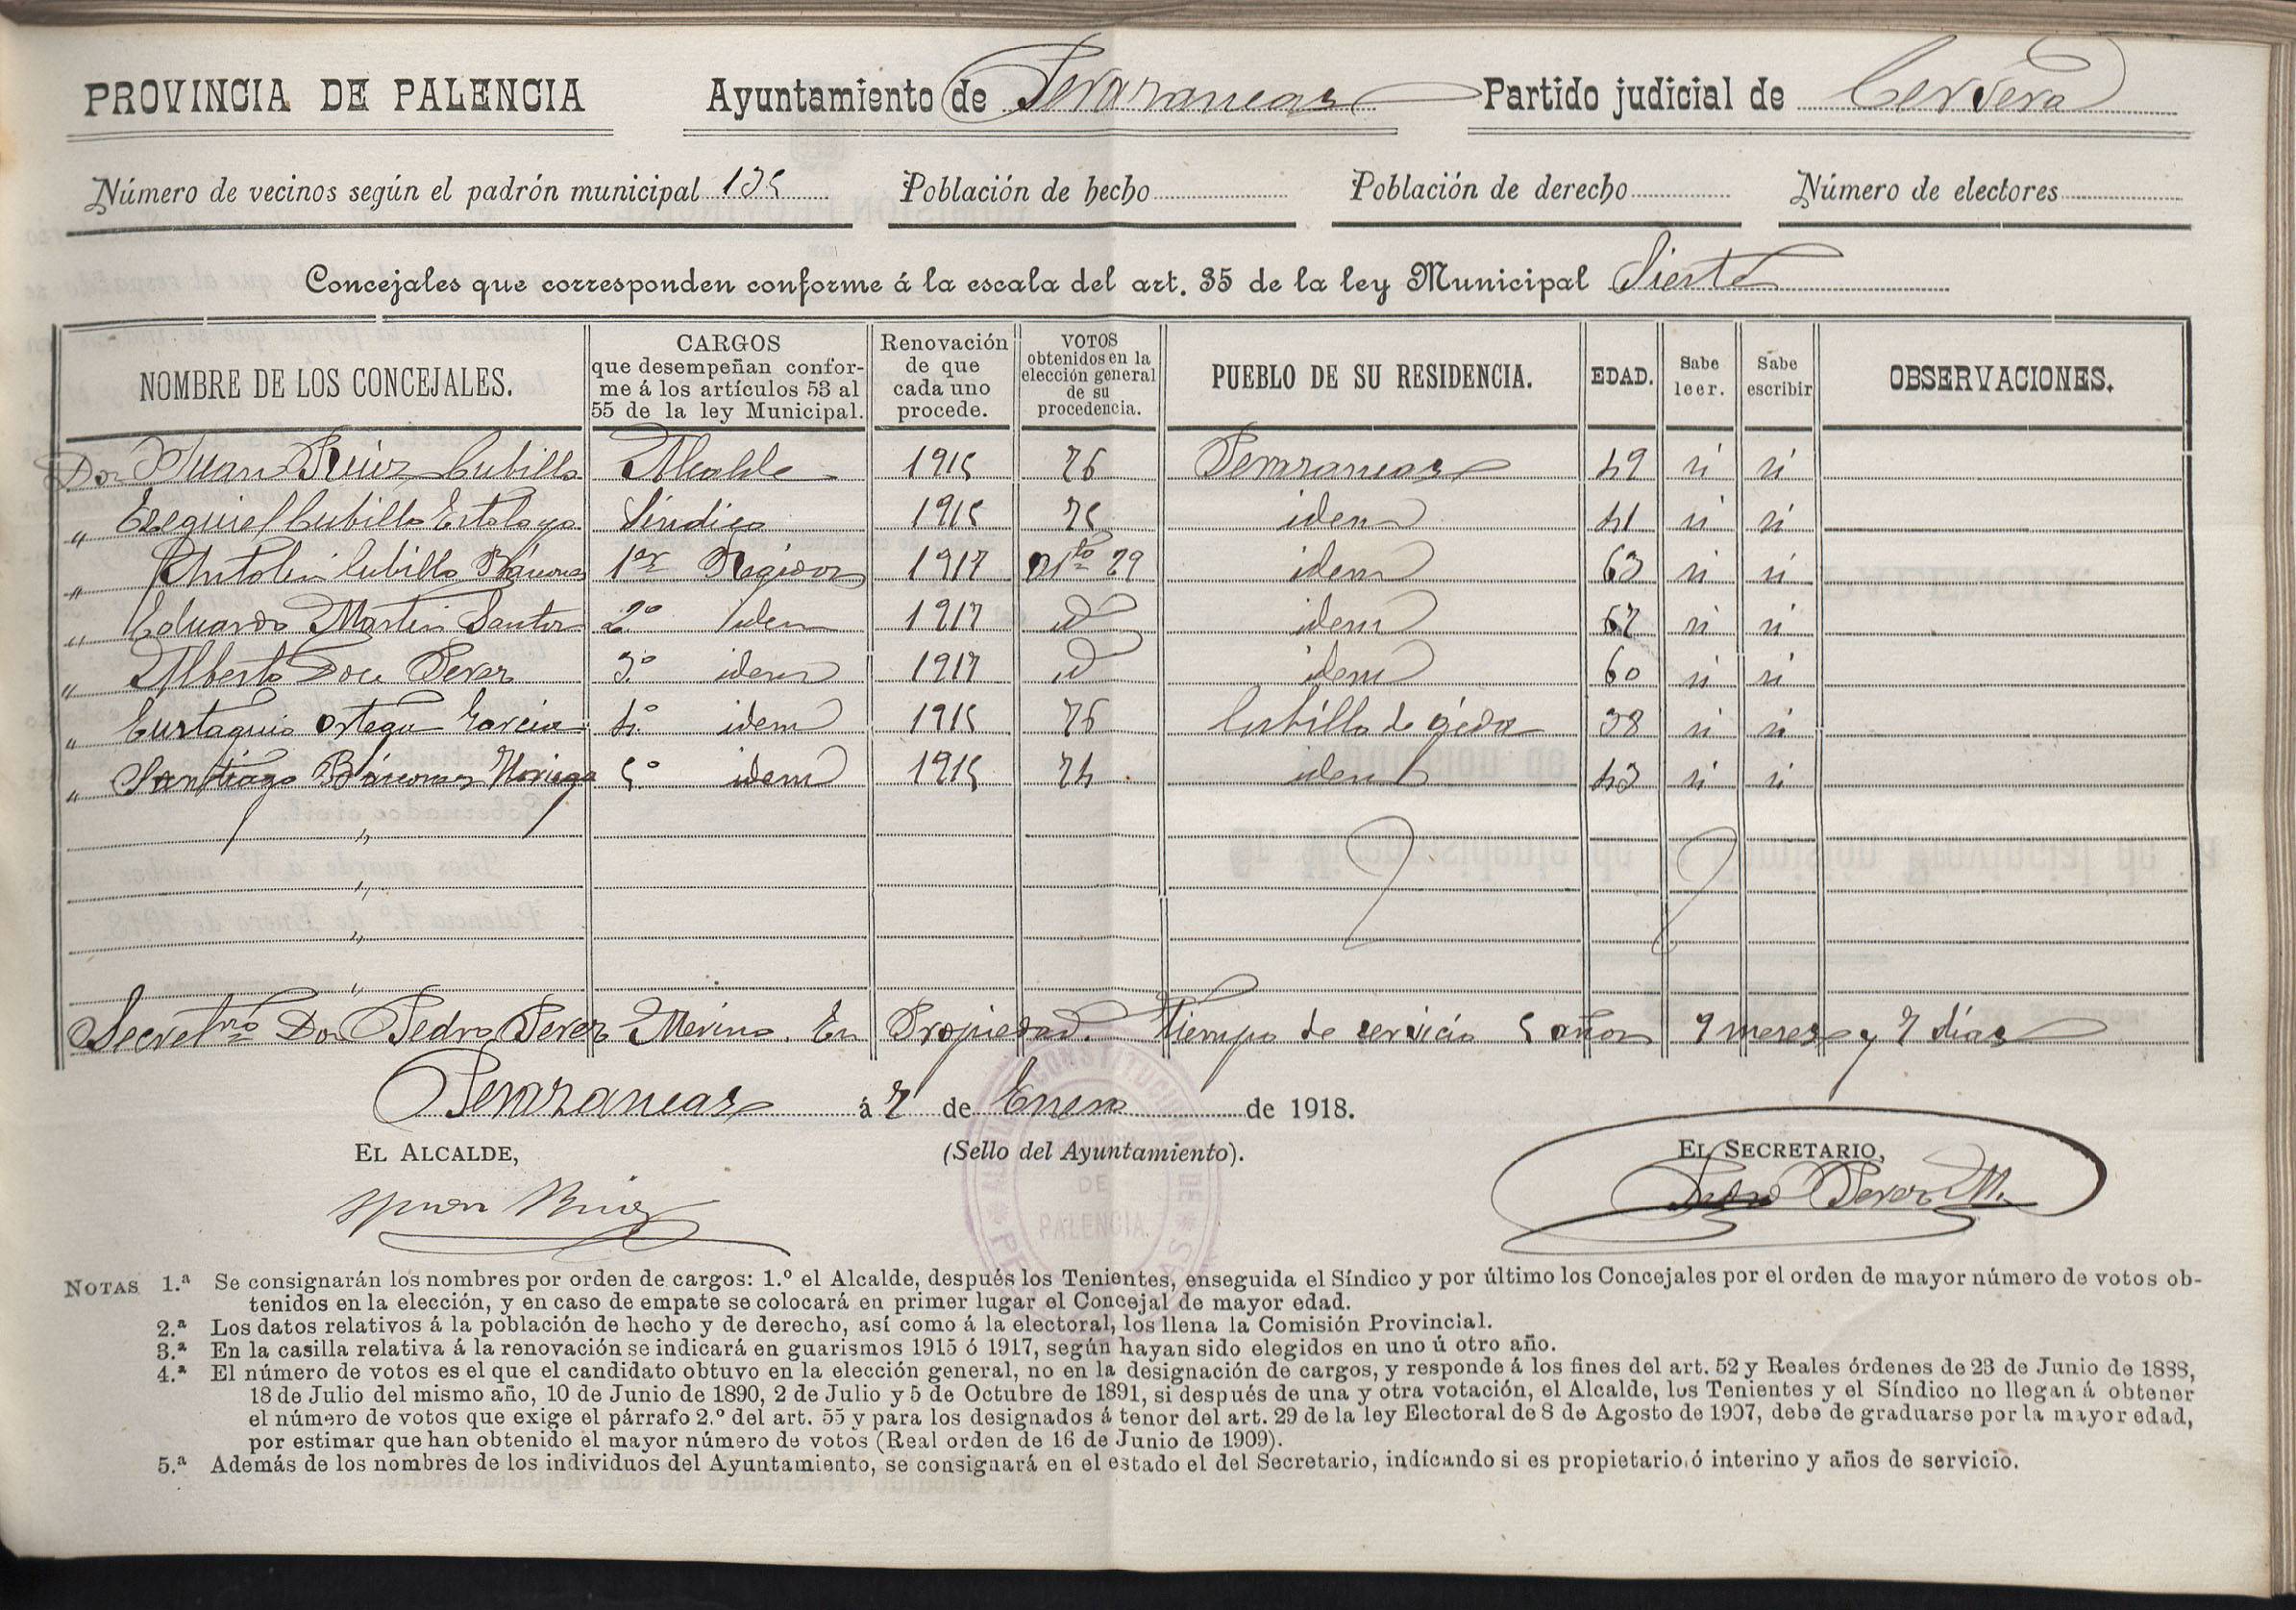 PROVINCIA DE PALENCIA Ayuntamiento de Perazancas Partido judicial de Cervera
Número de vecinos según el padrón municipal 135 Población de hecho Población de derecho Número de electores
Concejales que corresponden conforme á la escala del art. 35 de la ley Municipal Siete
NOMBRE DE LOS CONCEJALES. CARGOS que desempeñan conforme á los artículos 53 al 55 de la ley Municipal. Renovación de que cada uno procede. VOTOS obtenidos en la elección general de su procedencia. PUEBLO DE SU RESIDENCIA. EDAD. Sabe leer. Sabe escribir OBSERVACIONES.
Don Juan Ruiz Cubillo Alcalde 1915 76 Perazancas 49 si si
" Ezequiel Cubillo Estalayo Síndico 1915 75 idem 41 si si
" Antolin Cubillo Báscones 1er Regidor 1917 29 idem 63 si si
" Eduardo Martin Santos 2º idem 1917 id idem 67 si si
" Alberto Doce Perez 3º idem 1917 id idem 60 si si
" Eustaquio Ortega Garcia 4º idem 1915 76 Cubillo de Ojeda 38 si si
" Santiago Báscones Noriega 5º idem 1915 74 idem 43 si si
"
"
"
"
Secretrio Don Pedro Perez Merino. En Propiedad. Tiempo de servicio 5 años 9 meses y 7 días
Perazancas á 7 de Enero de 1918.
EL ALCALDE, (Sello del Ayuntamiento). EL SECRETARIO,
Juan Ruiz Pedro Perez M.
DE
PALENCIA
NOTAS 1.ª Se consignarán los nombres por orden de cargos: 1.º el Alcalde, después los Tenientes, enseguida el Síndico y por último los Concejales por el orden de mayor número de votos ob-
tenidos en la elección, y en caso de empate se colocará en primer lugar el Concejal de mayor edad.
2.ª Los datos relativos á la población de hecho y de derecho, así como á la electoral, los llena la Comisión Provincial.
3.ª En la casilla relativa á la renovación se indicará en guarismos 1915 ó 1917, según hayan sido elegidos en uno ú otro año.
4.ª El número de votos es el que el candidato obtuvo en la elección general, no en la designación de cargos, y responde á los fines del art. 52 y Reales órdenes de 23 de Junio de 1888,
18 de Julio del mismo año, 10 de Junio de 1890, 2 de Julio y 5 de Octubre de 1891, si después de una y otra votación, el Alcalde, los Tenientes y el Síndico no llegan á obtener
el número de votos que exige el párrafo 2.º del art. 55 y para los designados á tenor del art. 29 de la ley Electoral de 8 de Agosto de 1907, debe de graduarse por la mayor edad,
por estimar que han obtenido el mayor número de votos (Real orden de 16 de Junio de 1909).
5.ª Además de los nombres de los individuos del Ayuntamiento, se consignará en el estado el del Secretario, indicando si es propietario ó interino y años de servicio.